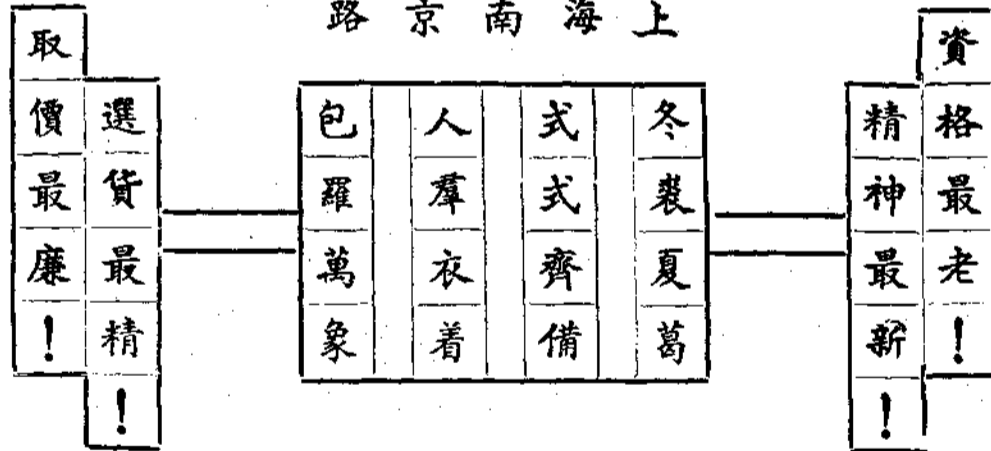 上海南京路
資格最老！
精神最新！
冬裘夏葛
式式齊備
人羣衣着
包羅萬象
選貨最精！
取價最廉！